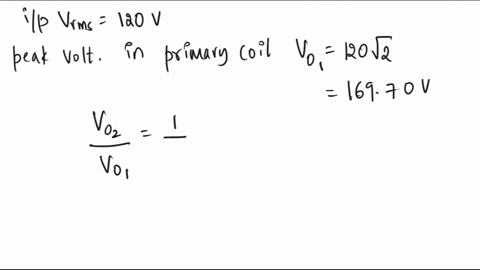 i/p Vrms = 120 V
peak volt. in primary coil V01 = 120√2
= 169.70 V
V02 / V01 = 1